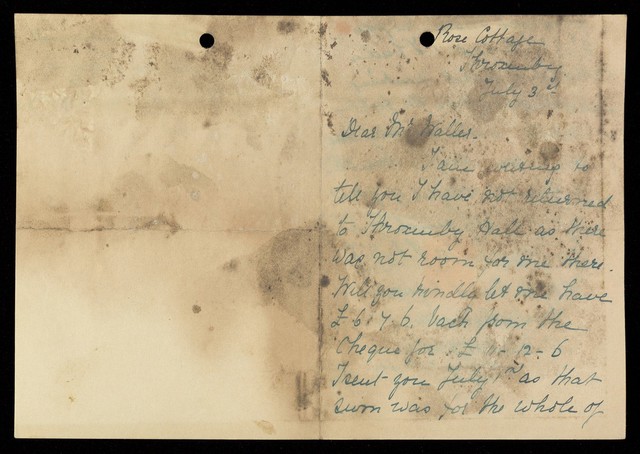 Rose Cottage
Throxenby
July 3rd
Dear Mr Waller.
I am writing to
tell you I have not returned
to Throxenby Hall as there
was not room for me there.
Will you kindly let me have
£6. 7. 6. back from the
Cheque for £ 11-12-6
I sent you July 1st as that
sum was for the whole of